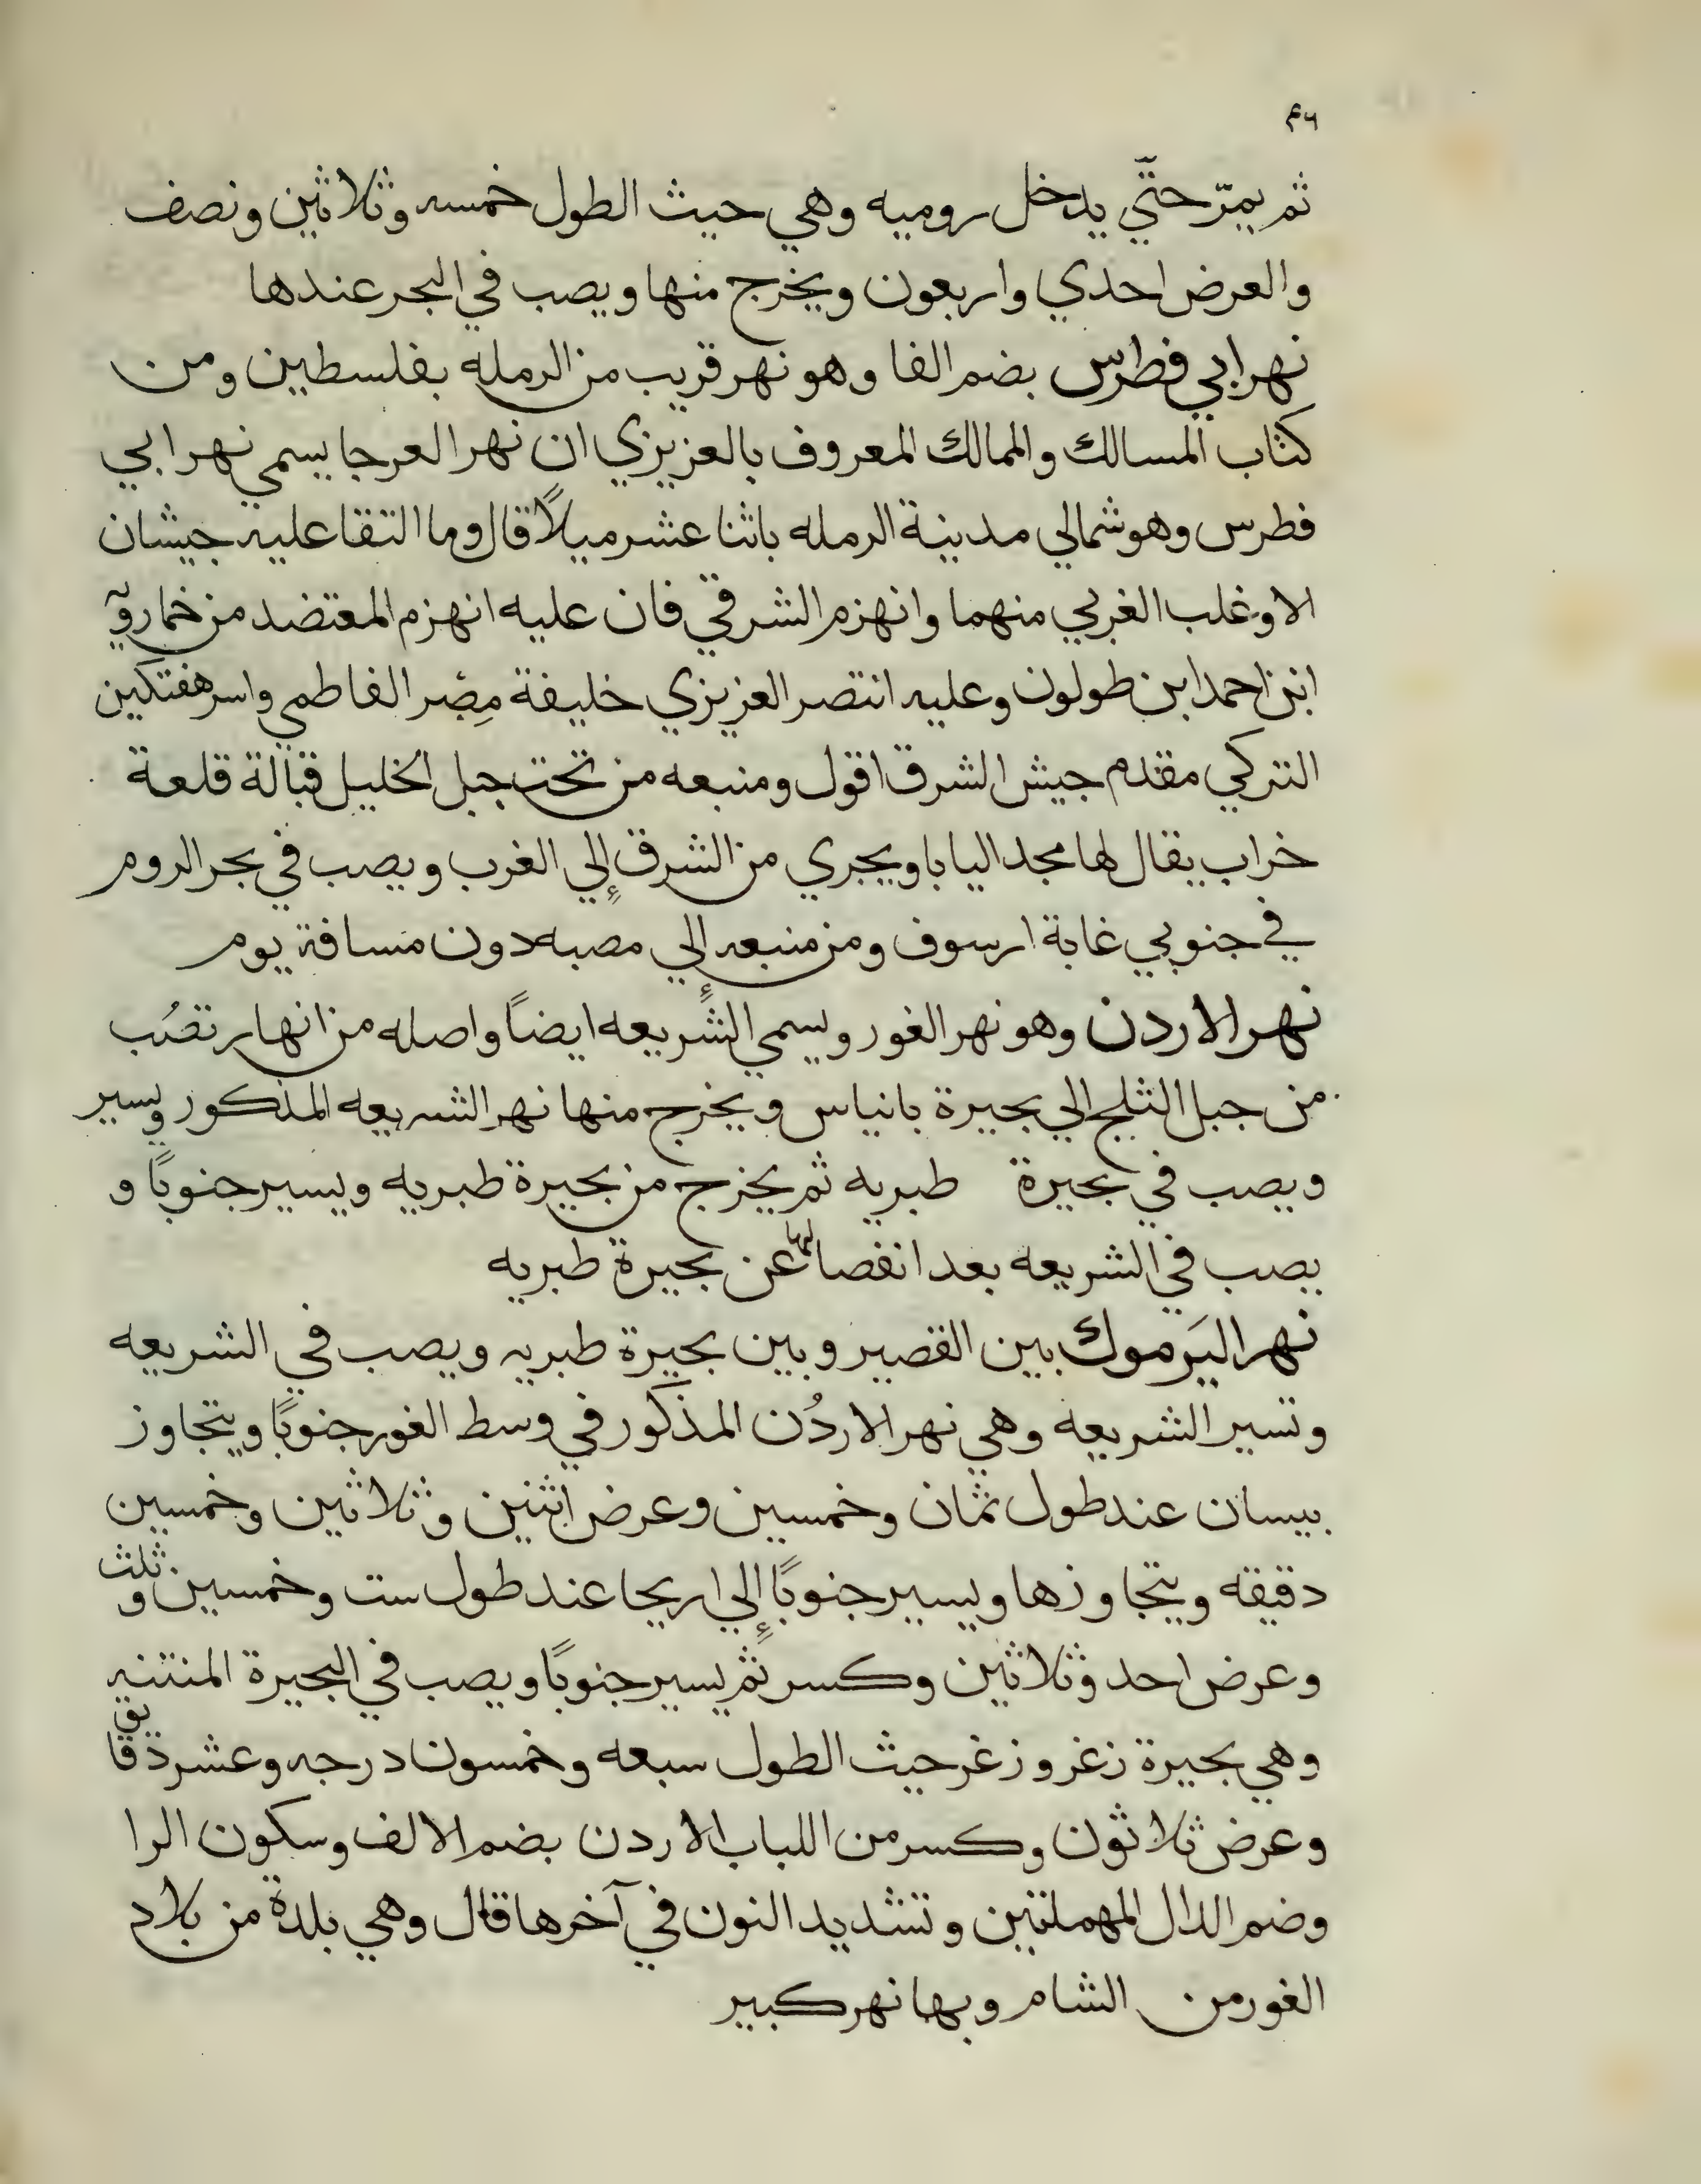 ٤٦
ثم يمرّ حتّي يدخل روميه وهي حيث الطول خمسه وثلاثين ونصف
والعرض احدي واربعون ويخرج منها ويصب في البحر عندها
نهر ابي فطرس بضم الفا وهو نهر قريب من الرمله بفلسطين ومن
كتاب المسالك والممالك المعروف بالعزيزي ان نهر العرجا يسمي نهر ابي
فطرس وهو شمالي مدينة الرمله باثنا عشر ميلاً قال وما التقا عليه جيشان
الا وغلب الغربي منهما وانهزم الشرقي فان عليه انهزم المعتضد من خمارويه
ابن احمد ابن طولون وعليه انتصر العزيزي خليفة مِصْر الفاطمي واسر هفتكين
التركي مقدم جيش الشرق اقول ومنبعه من تحت جبل الخليل قبالة قلعة
خراب يقال لها مجد اليابا ويجري من الشرق إلي الغرب ويصب في بحر الروم
في جنوبي غابة ارسوف ومن منبعه إلي مصبه دون مسافة يوم
نهر الاردن وهو نهر الغور ويسمي الشريعه ايضاً واصله من انهار تصُب
من جبل الثلج الي بحيرة بانياس ويخرج منها نهر الشريعه المذكور ويسير
ويصب في بحيرة طبريه ثم يخرج من بحيرة طبريه ويسير جنوبًا و
يصب في الشريعه بعد انفصالها عن بحيرة طبريه
نهر اليَرموك بين القصير وبين بحيرة طبريه ويصب في الشريعه
وتسير الشريعه وهي نهر الاردُن المذكور في وسط الغور جنوبًا ويتجاوز
بيسان عند طول ثمان وخمسين وعرض اثنين وثلاثين وخمسين
دقيقه ويتجاوزها ويسير جنوبًا إلي اريحا عند طول ست وخمسين وثلث
وعرض احد وثلاثين وكسر ثم يسير جنوبًا ويصب في البحيرة المنتنه
وهي بحيرة زغر وزغر حيث الطول سبعه وخمسون درجه وعشر دقايق
وعرض ثلاثون وكسر من اللباب الاردن بضم الالف وسكون الرا
وضم الدال المهملتين وتشديد النون في آخرها قال وهي بلدة من بلاد
الغور من الشام وبها نهر كبير